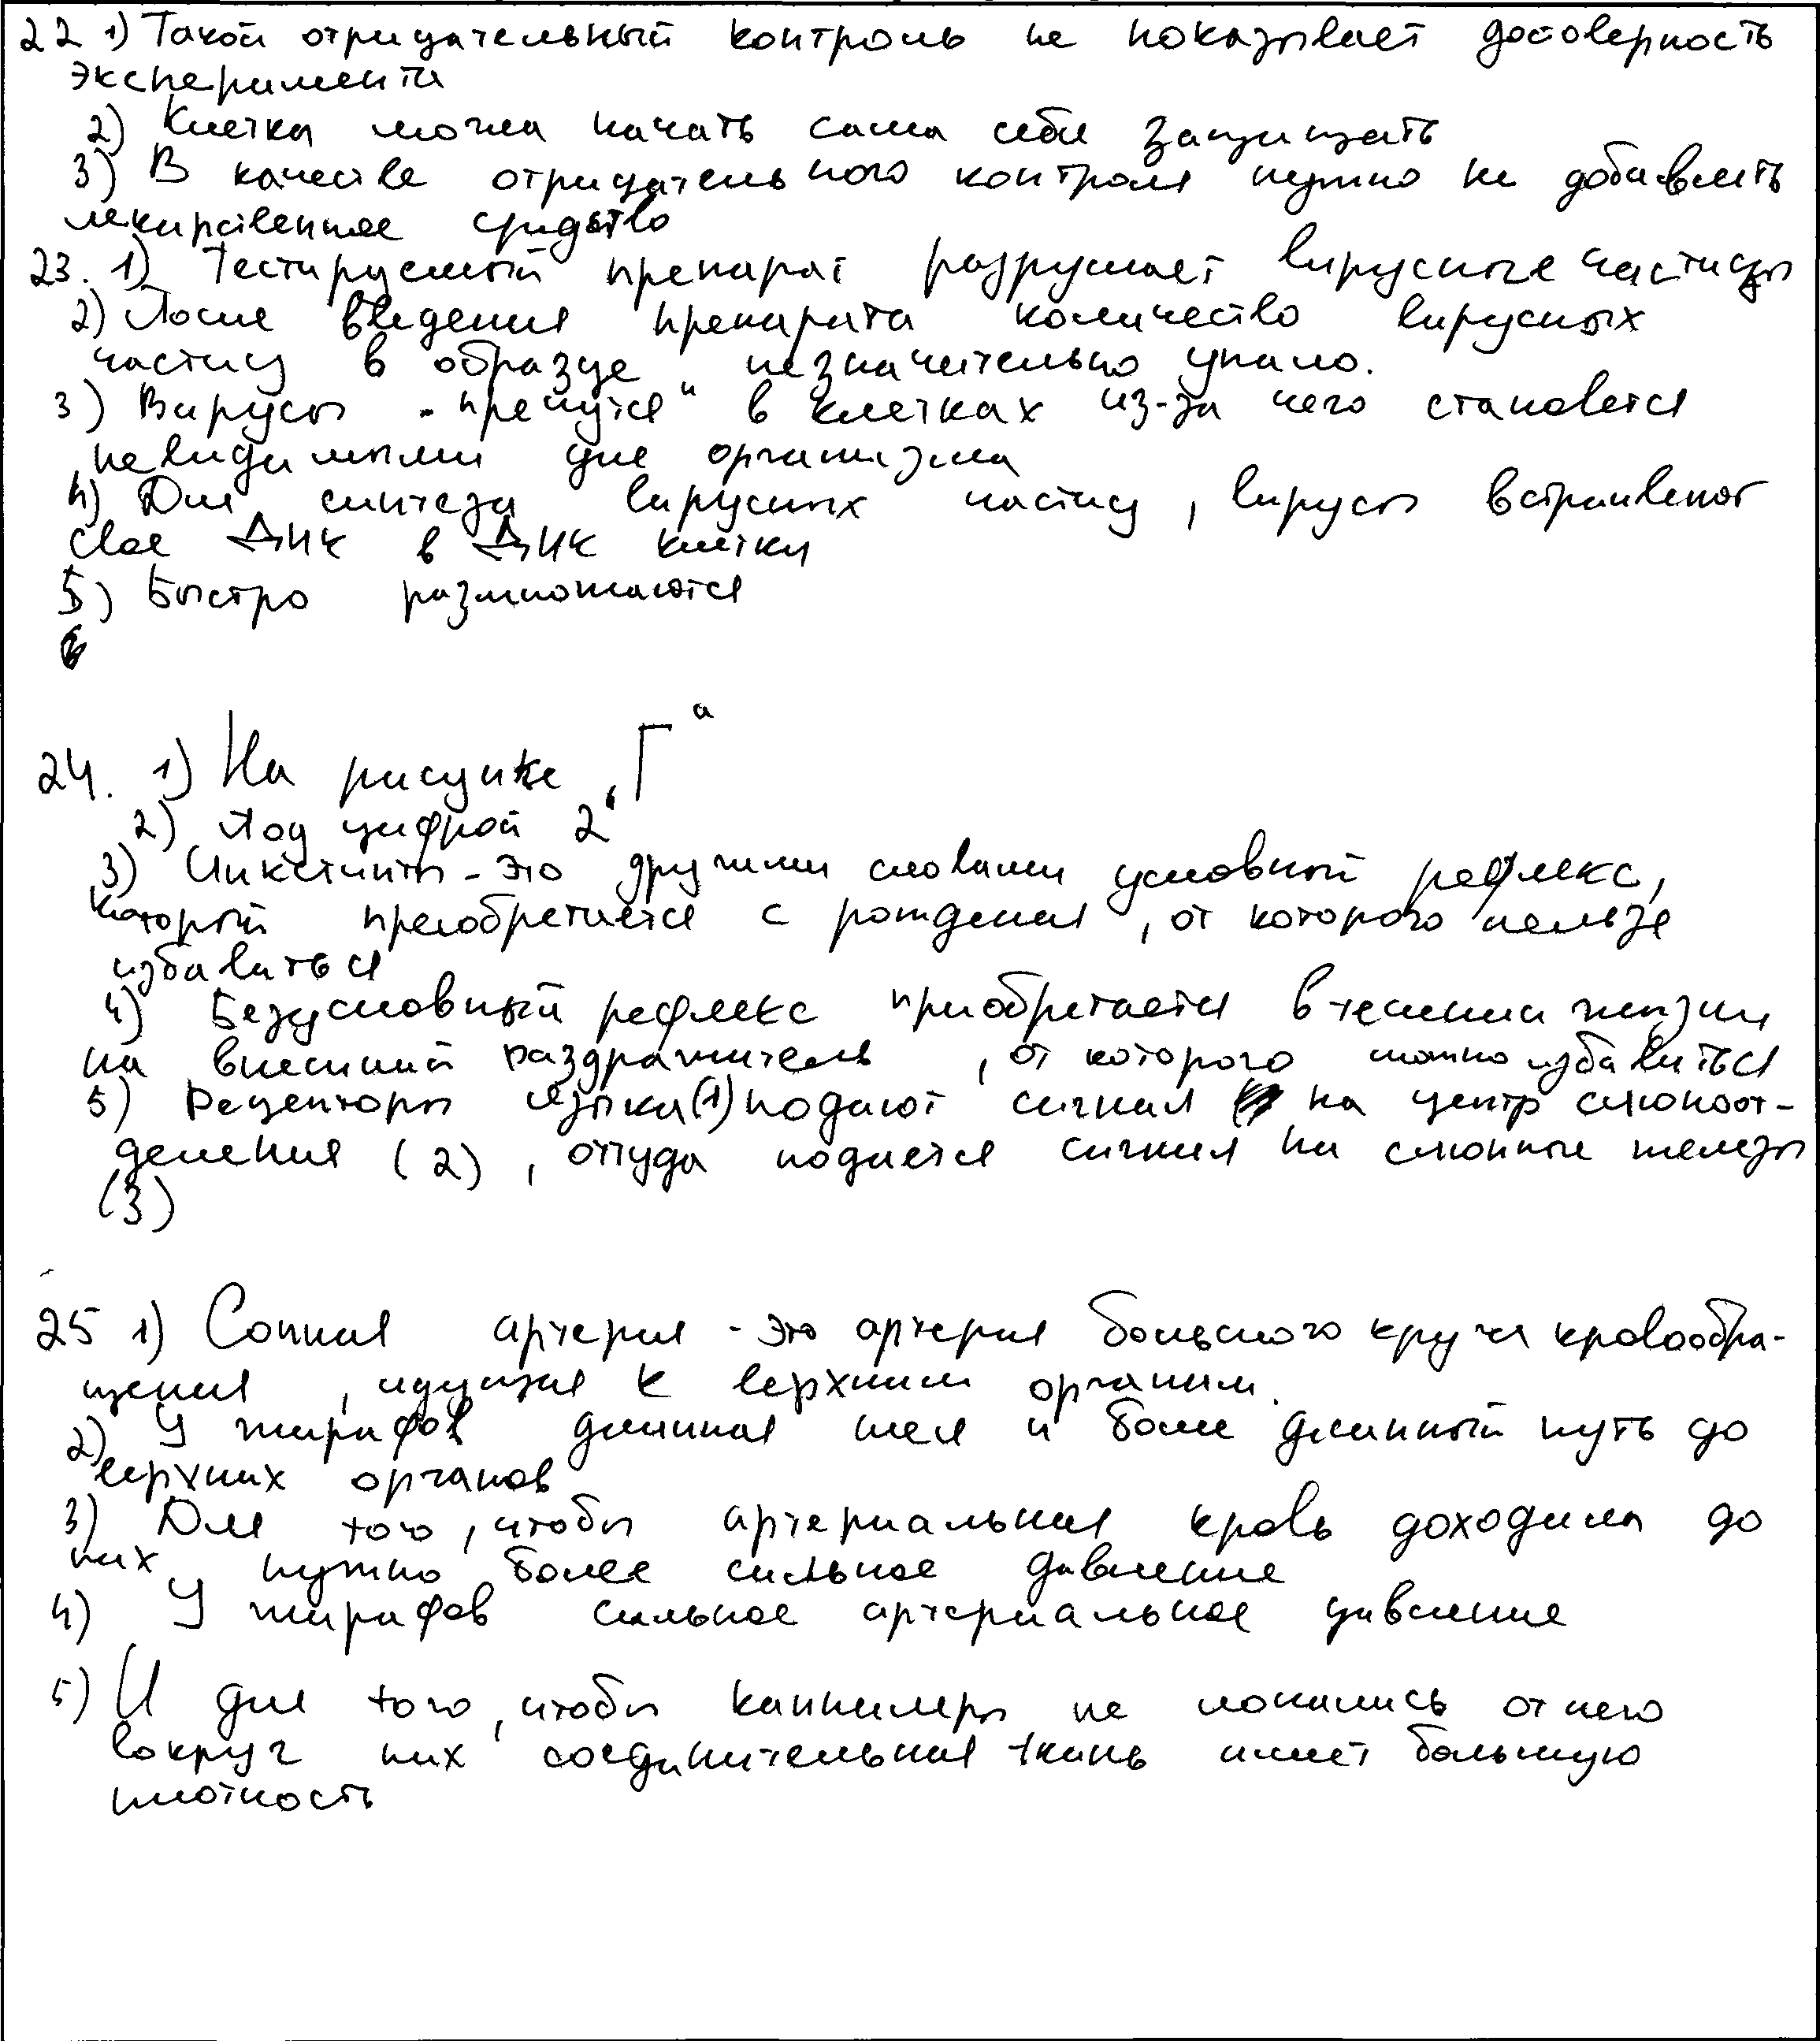 22 1) Такой отрицательный контроль не показывает достоверность
эксперимента
2) Клетка могла начать сама себя защищать
3) В качестве отрицательного контроля нужно не добавлять
лекарственное средство
23. 1) Тестируемый препарат разрушает вирусные частицы
2) После введения препарата количество вирусных
частиц в образце незначительно упало.
3) Вирусы "прячутся" в клетках из-за чего становятся
невидимыми для организма
4) Для синтеза вирусных частиц, вирусы встраивают
свое ДНК в ДНК клетки
5) Быстро размножаются
24. 1) На рисунке "Г"
2) Под цифрой 2
3) Инкстинты - это другими словами условный рефлекс,
который преобретается с рождения, от которого нельзя
избавиться
4) Безусловный рефлекс приобретается в течении жизни
на внешний раздражитель, от которого можно избавиться
5) Рецепторы языка (1) подают сигнал на центр слюноот-
деления (2), оттуда подается сигнал на слюнные железы
(3)
25 1) Сонная артерия - это артерия большого круга кровообра-
щения, идущая к верхним органам.
2) У жирафов длинная шея и более длинный путь до
верхних органов
3) Для того, чтобы артериальная кровь доходила до
них нужно более сильное давление
4) У жирафов сильное артериальное давление
5) И для того, чтобы капилляры не лопались от него
вокруг них соединительная ткань имеет большую
плотность